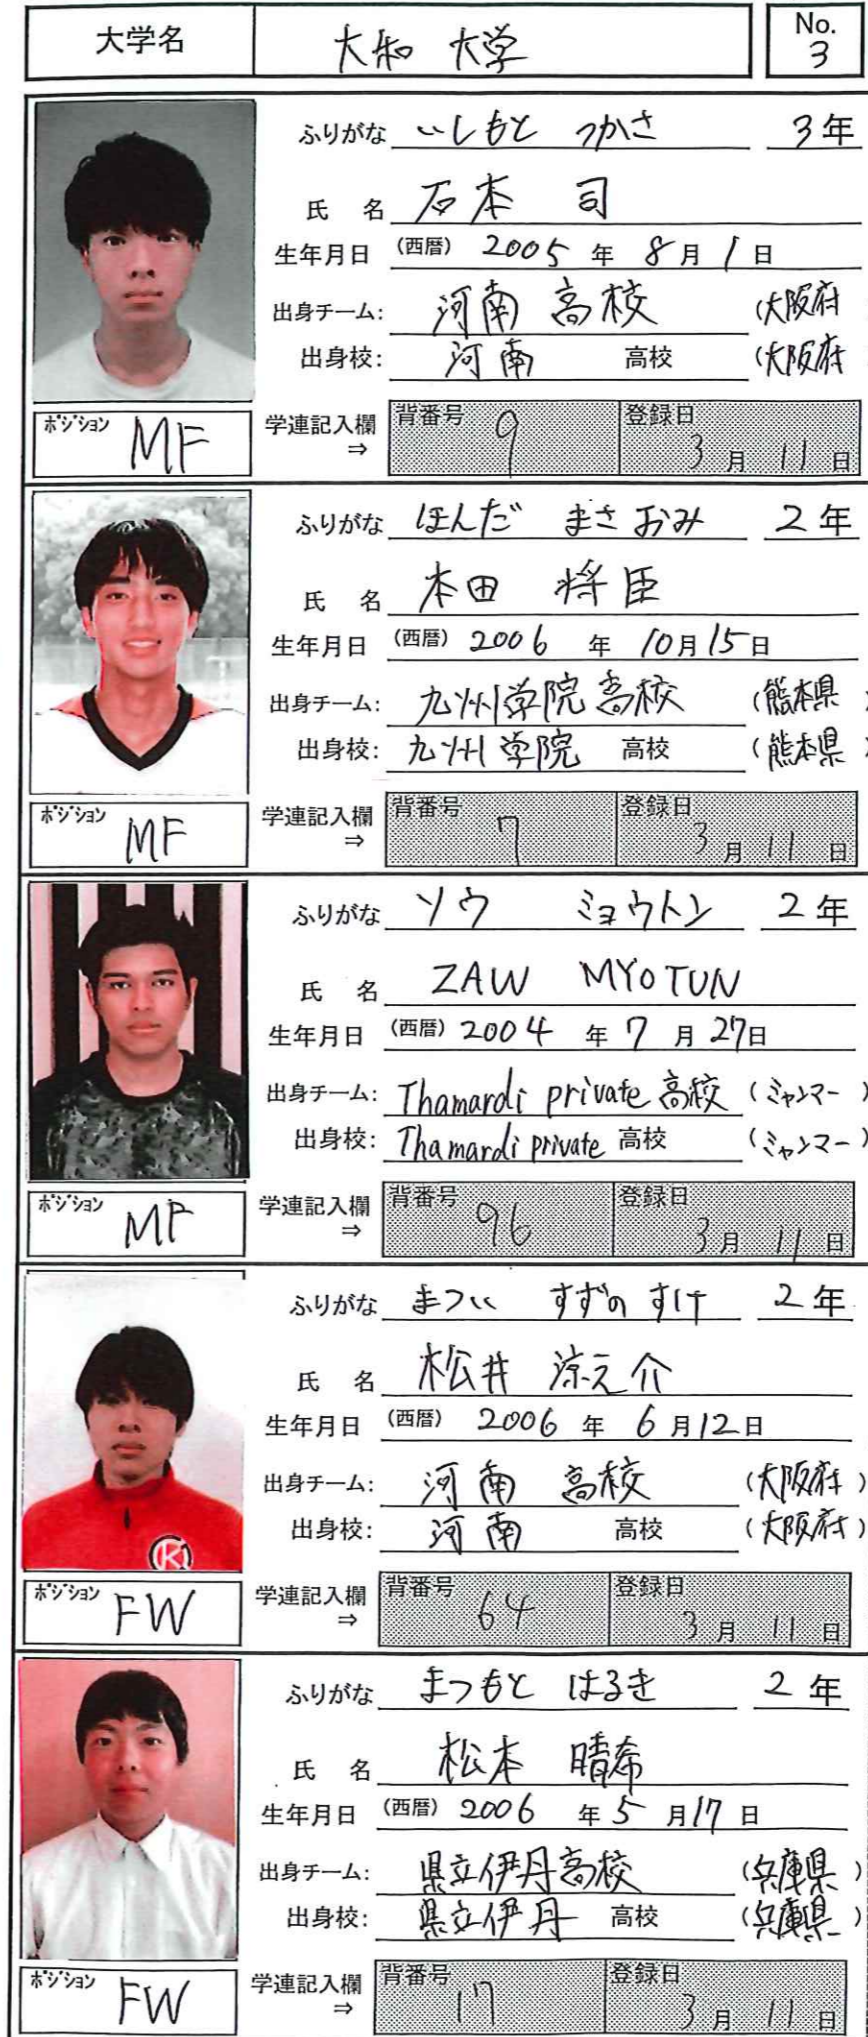 大学名 大和 大学 No. 3
ふりがな いしもと つかさ 3年
氏 名 石本 司
生年月日 (西暦) 2005 年 8月 1日
出身チーム: 河南 高校 (大阪府
出身校: 河南 高校 (大阪府
ポジション MF 学連記入欄 ⇒ 背番号 9 登録日 3月 11日
ふりがな ほんだ まさおみ 2年
氏 名 本田 将臣
生年月日 (西暦) 2006 年 10月15日
出身チーム: 九州学院高校 (熊本県 )
出身校: 九州学院 高校 (熊本県 )
ポジション MF 学連記入欄 ⇒ 背番号 7 登録日 3月 11日
ふりがな ソウ ミョウトン 2年
氏 名 ZAW MYO TUN
生年月日 (西暦) 2004 年 7月 27日
出身チーム: Thamardi private 高校 (ミャンマー )
出身校: Thamardi private 高校 (ミャンマー )
ポジション MF 学連記入欄 ⇒ 背番号 96 登録日 3月 11日
ふりがな まつい すずのすけ 2年
氏 名 松井 涼之介
生年月日 (西暦) 2006 年 6月12日
出身チーム: 河南 高校 (大阪府 )
出身校: 河南 高校 (大阪府 )
ポジション FW 学連記入欄 ⇒ 背番号 64 登録日 3月 11日
ふりがな まつもと はるき 2年
氏 名 松本 晴希
生年月日 (西暦) 2006 年 5月17日
出身チーム: 県立伊丹高校 (兵庫県 )
出身校: 県立伊丹 高校 (兵庫県 )
ポジション FW 学連記入欄 ⇒ 背番号 17 登録日 3月 11日